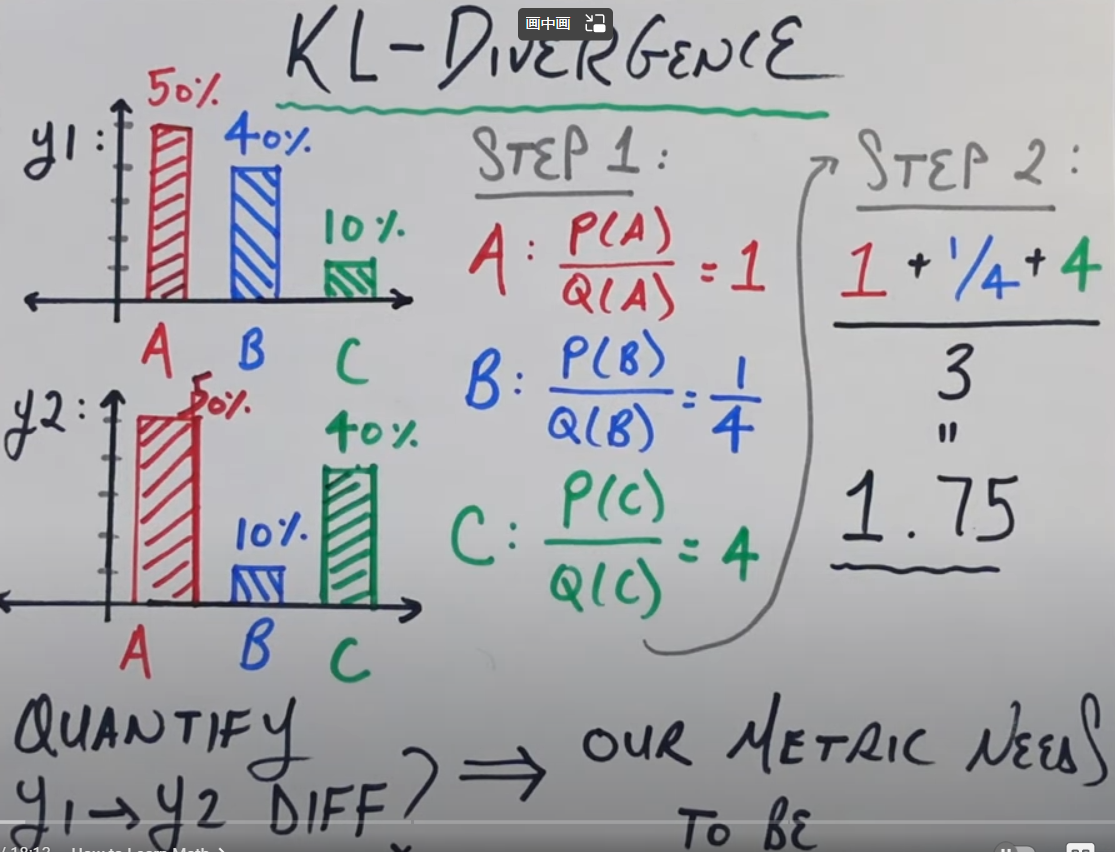 画中画
KL-DIVERGENCE
50%
y1:
40%
10%
A B C
y2:
50%
10%
40%
A B C
STEP 1:
A: P(A)/Q(A) = 1
B: P(B)/Q(B) = 1/4
C: P(C)/Q(C) = 4
STEP 2:
1 + 1/4 + 4
3
"
1.75
QUANTIFY
y1→y2 DIFF?
⇒ OUR METRIC NEEDS
TO BE
/ 18:13
How to Learn Math >